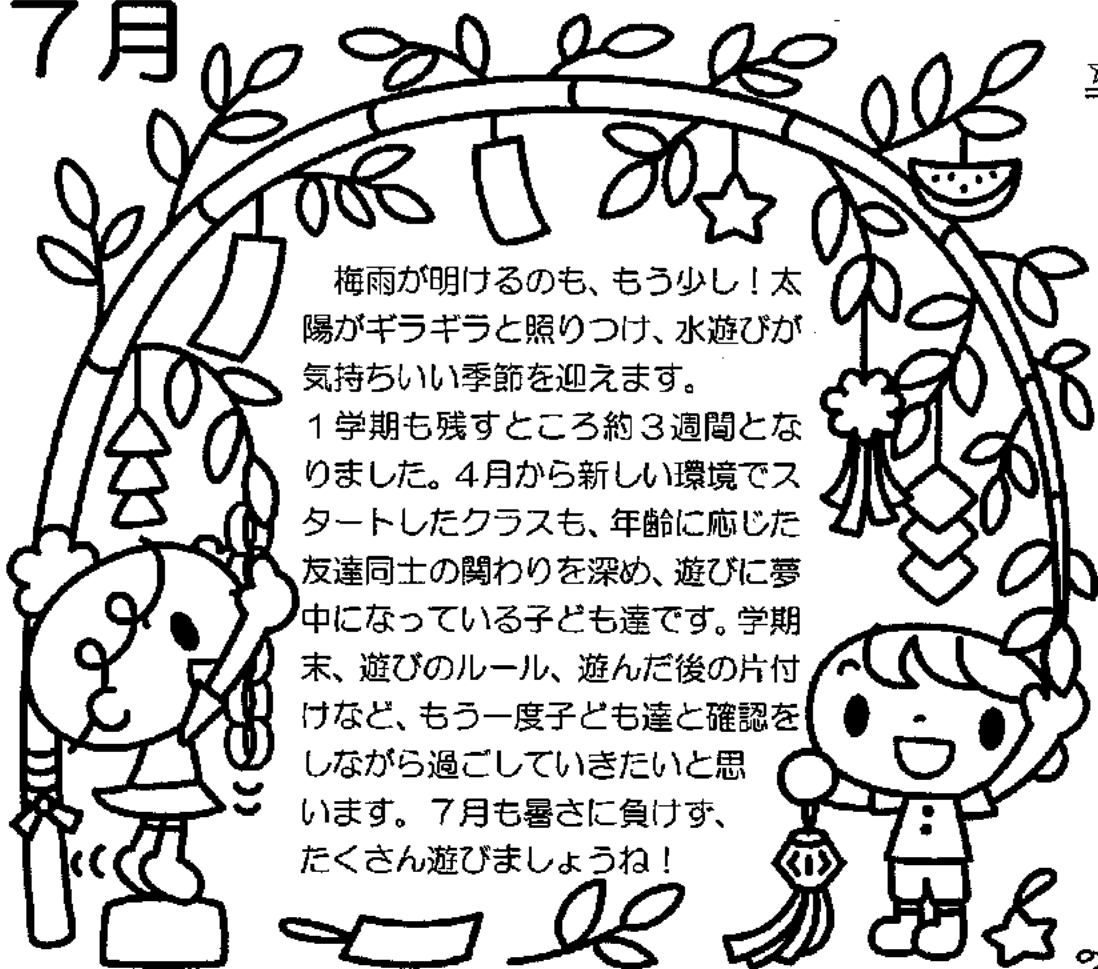 7月
梅雨が明けるのも、もう少し！太
陽がギラギラと照りつけ、水遊びが
気持ちいい季節を迎えます。
１学期も残すところ約３週間とな
りました。４月から新しい環境でス
タートしたクラスも、年齢に応じた
友達同士の関わりを深め、遊びに夢
中になっている子ども達です。学期
末、遊びのルール、遊んだ後の片付
けなど、もう一度子ども達と確認を
しながら過ごしていきたいと思
います。７月も暑さに負けず、
たくさん遊びましょうね！